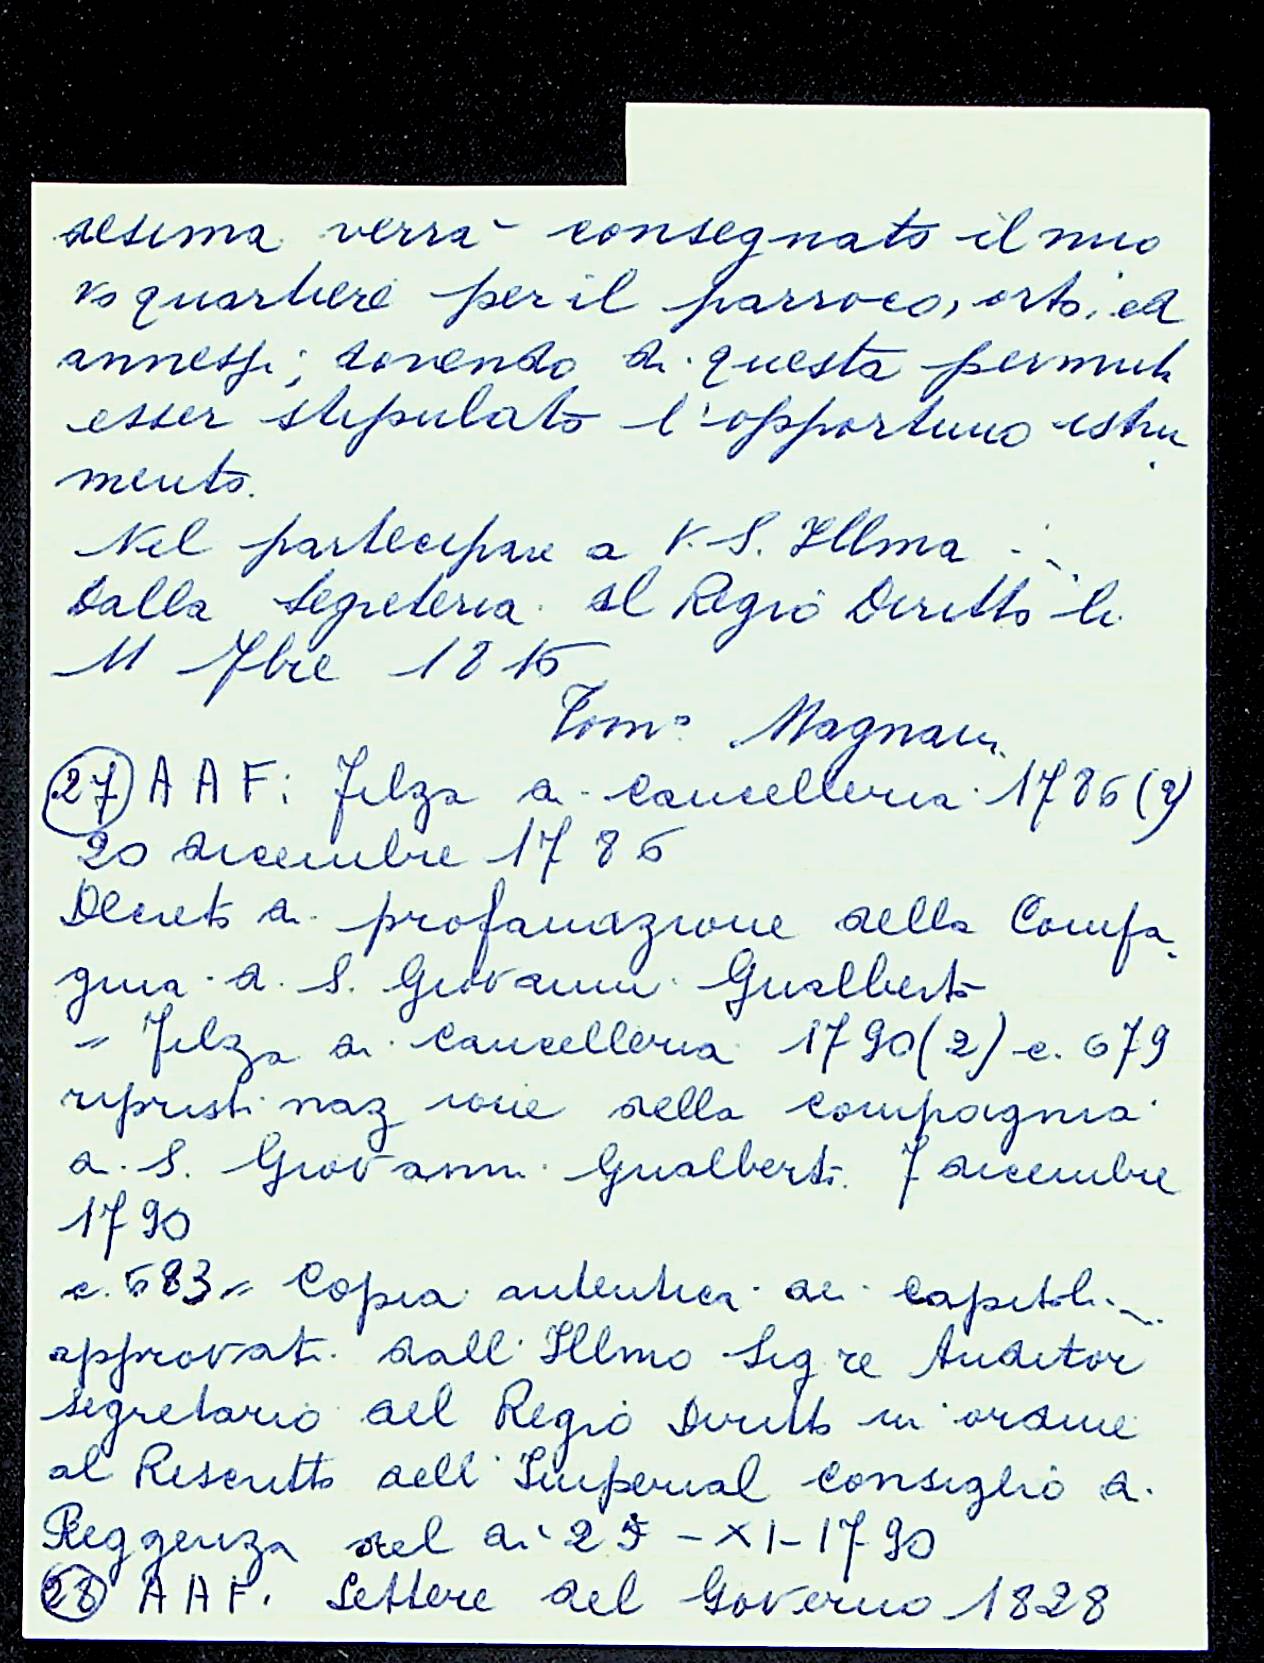 desima verrà consegnato il nuo
vo quartiere per il parroco, orto, ed
annessi; dovendo di questa permuta
esser stipulato l'opportuno istru
mento.
Nel partecipare a V. S. Illma ...
Dalla Segreteria del Regio Diritto li
11 7bre 1815
Tomo Magnani
(27) A A F: Filza di cancelleria 1786 (2)
20 dicembre 1786
Decreto di profanazione della Compa
gnia di S. Giovanni Gualberto
= Filza di cancelleria 1790 (2) c. 679
ripristinazione della compagnia
di S. Giovanni Gualberto. 7 dicembre
1790
c. 683 = Copia autentica dei capitoli
approvati dall'Illmo Sigre Auditor
segretario del Regio Diritto in ordine
al Rescritto dell'Imperial consiglio di
Reggenza del dì 25-XI-1790
(28) A A F. Lettere del Governo 1828